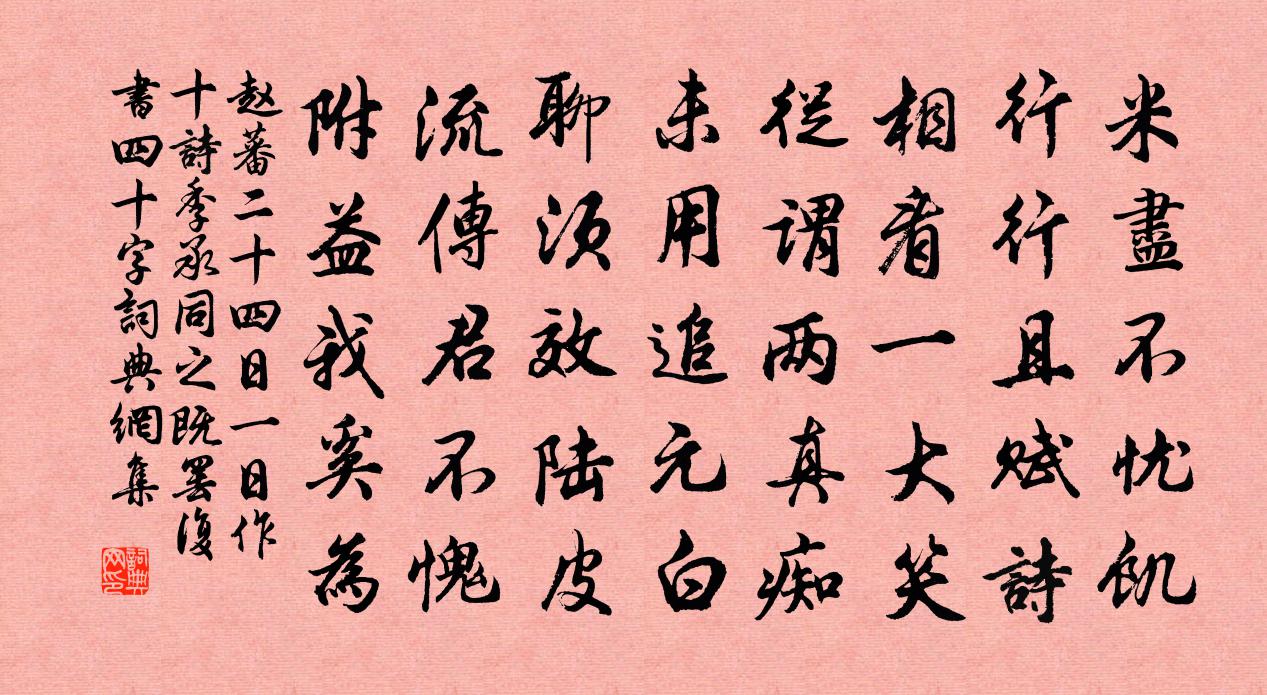 米盡不忧飢
行行且赋詩
相看一大笑
從谓两真痴
未用追元白
聊须效陆皮
流傳君不愧
附益我奚為
赵蕃二十四日一日作
十詩季承同之既罢復
書四十字詞典網集
詞典网印